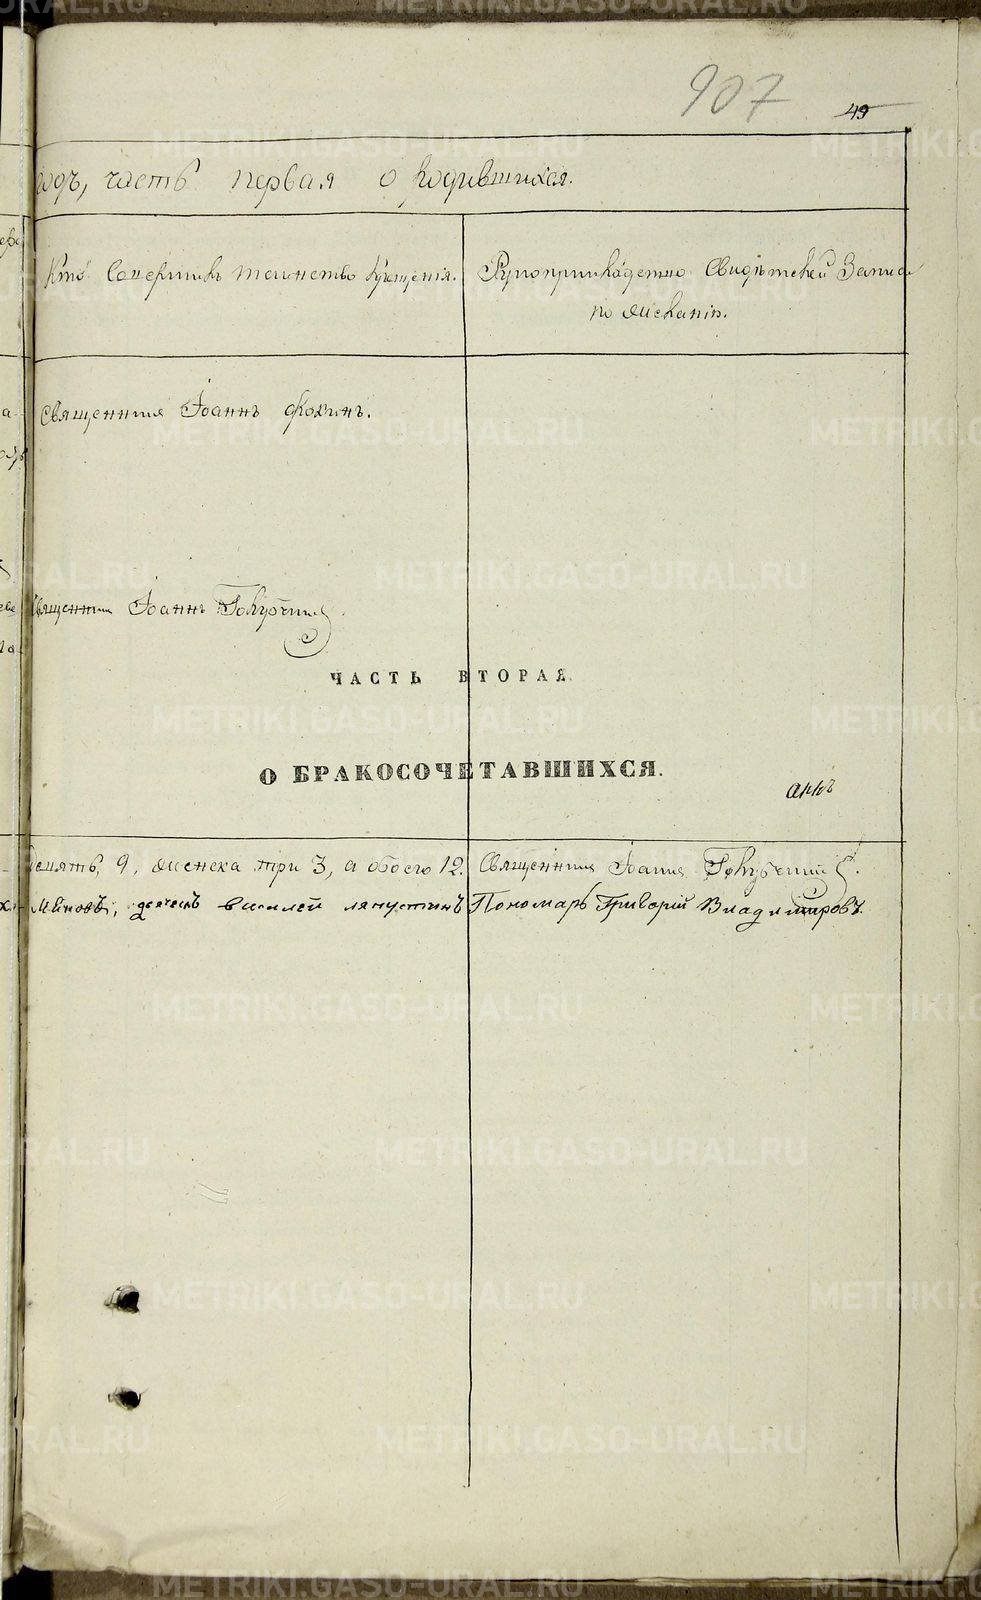 907
49
годъ, часть первая о родившихся.
Кто Совершилъ таинство Крещенія.
Рукоприкладство Свидѣтелей Записи
по желанію.
Священникъ Іоаннъ Фокинъ.
Священникъ Іоаннъ
ЧАСТЬ ВТОРАЯ
О БРАКОСОЧЕТАВШИХСЯ.
девять, 9, женска три 3, а обоего 12. Священникъ Іоаннъ
дьячекъ Василей Ляпустинъ Пономарь Григорій Владимировъ.
METRIKI.GASO-URAL.RU